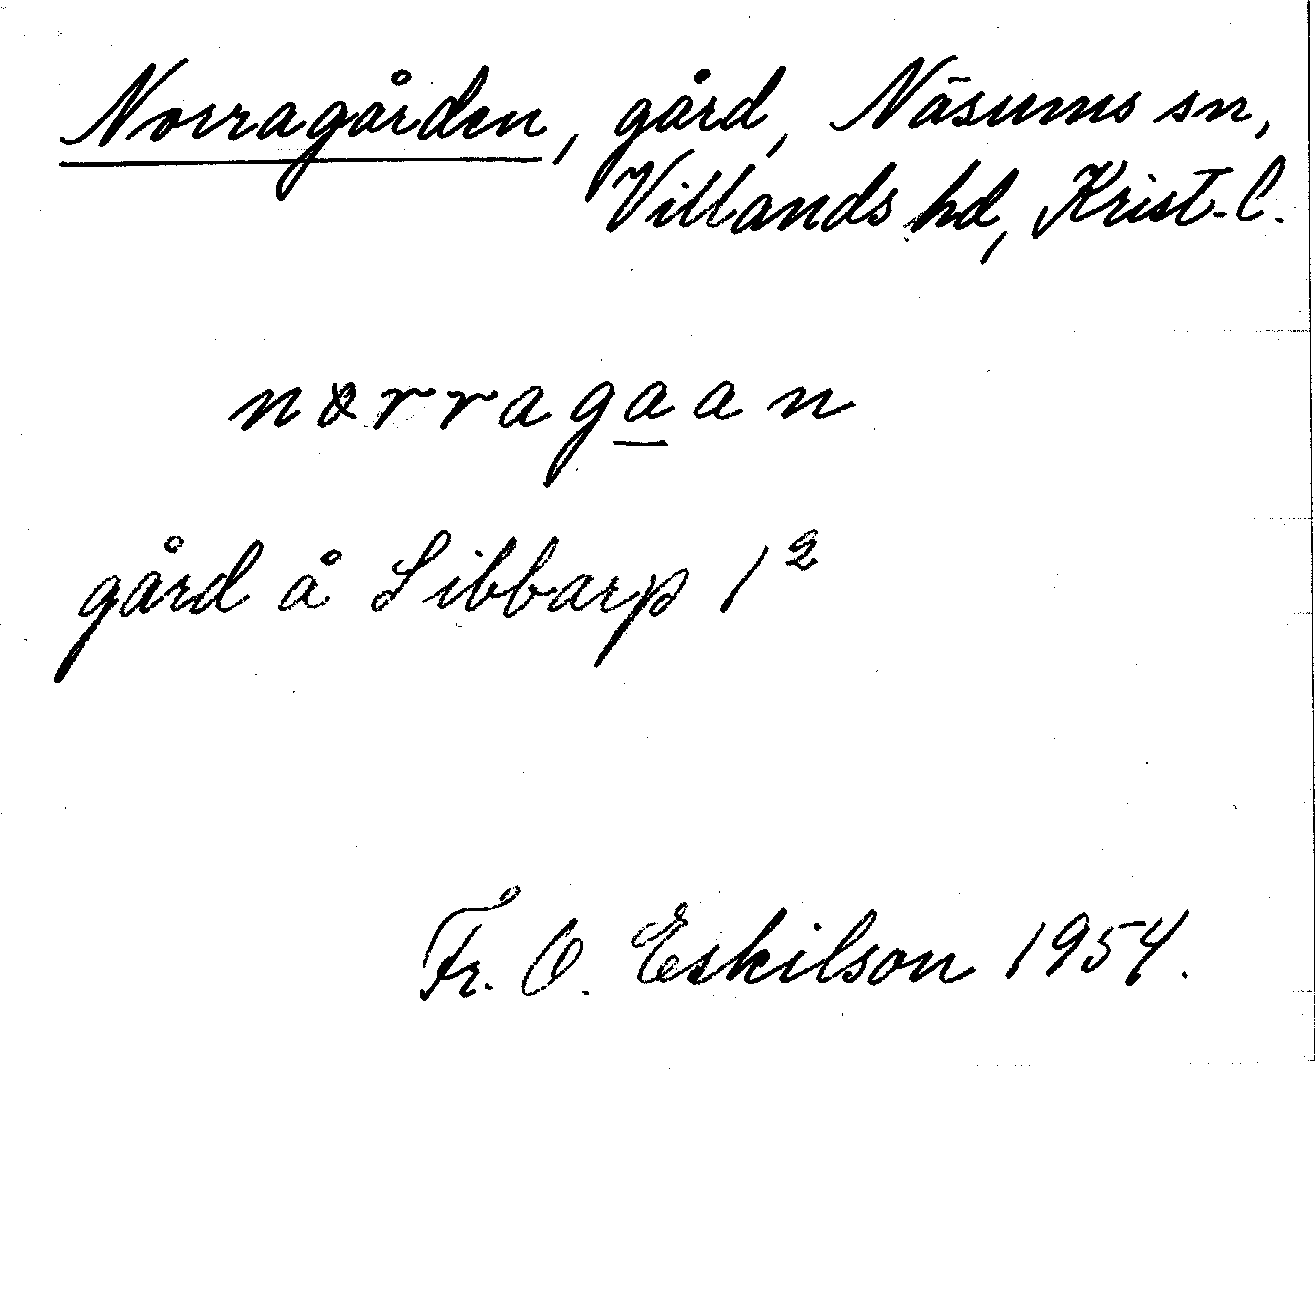 Norragården, gård, Näsums sn,
Villands hd, Krist. l.
nørragaan
gård å Sibbarp 1²
Fr. O. Eskilson 1954.